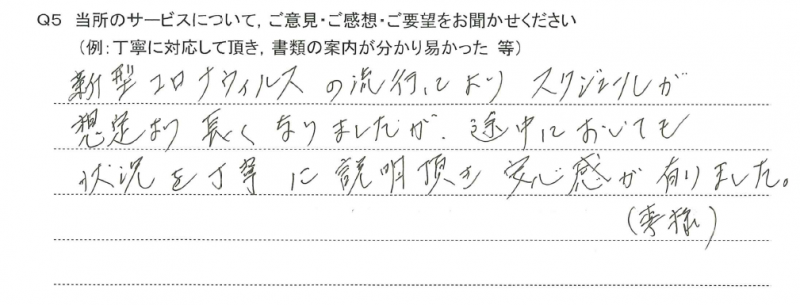 Q5 当所のサービスについて，ご意見・ご感想・ご要望をお聞かせください
（例：丁寧に対応して頂き，書類の案内が分かり易かった 等）
新型コロナウィルスの流行により スケジュールが
想定より 長くなりましたが、途中においても
状況を丁寧に説明頂き 安心感が有りました。